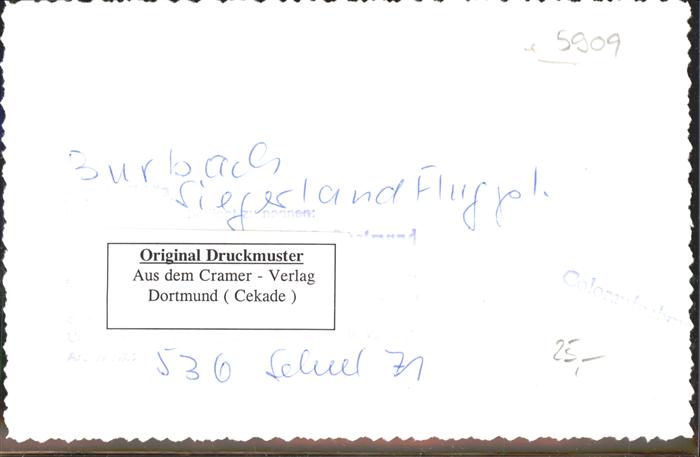 5909
Burbach
Siegerland Flugpl.
Original Druckmuster
Aus dem Cramer - Verlag
Dortmund ( Cekade )
25,-
530
71